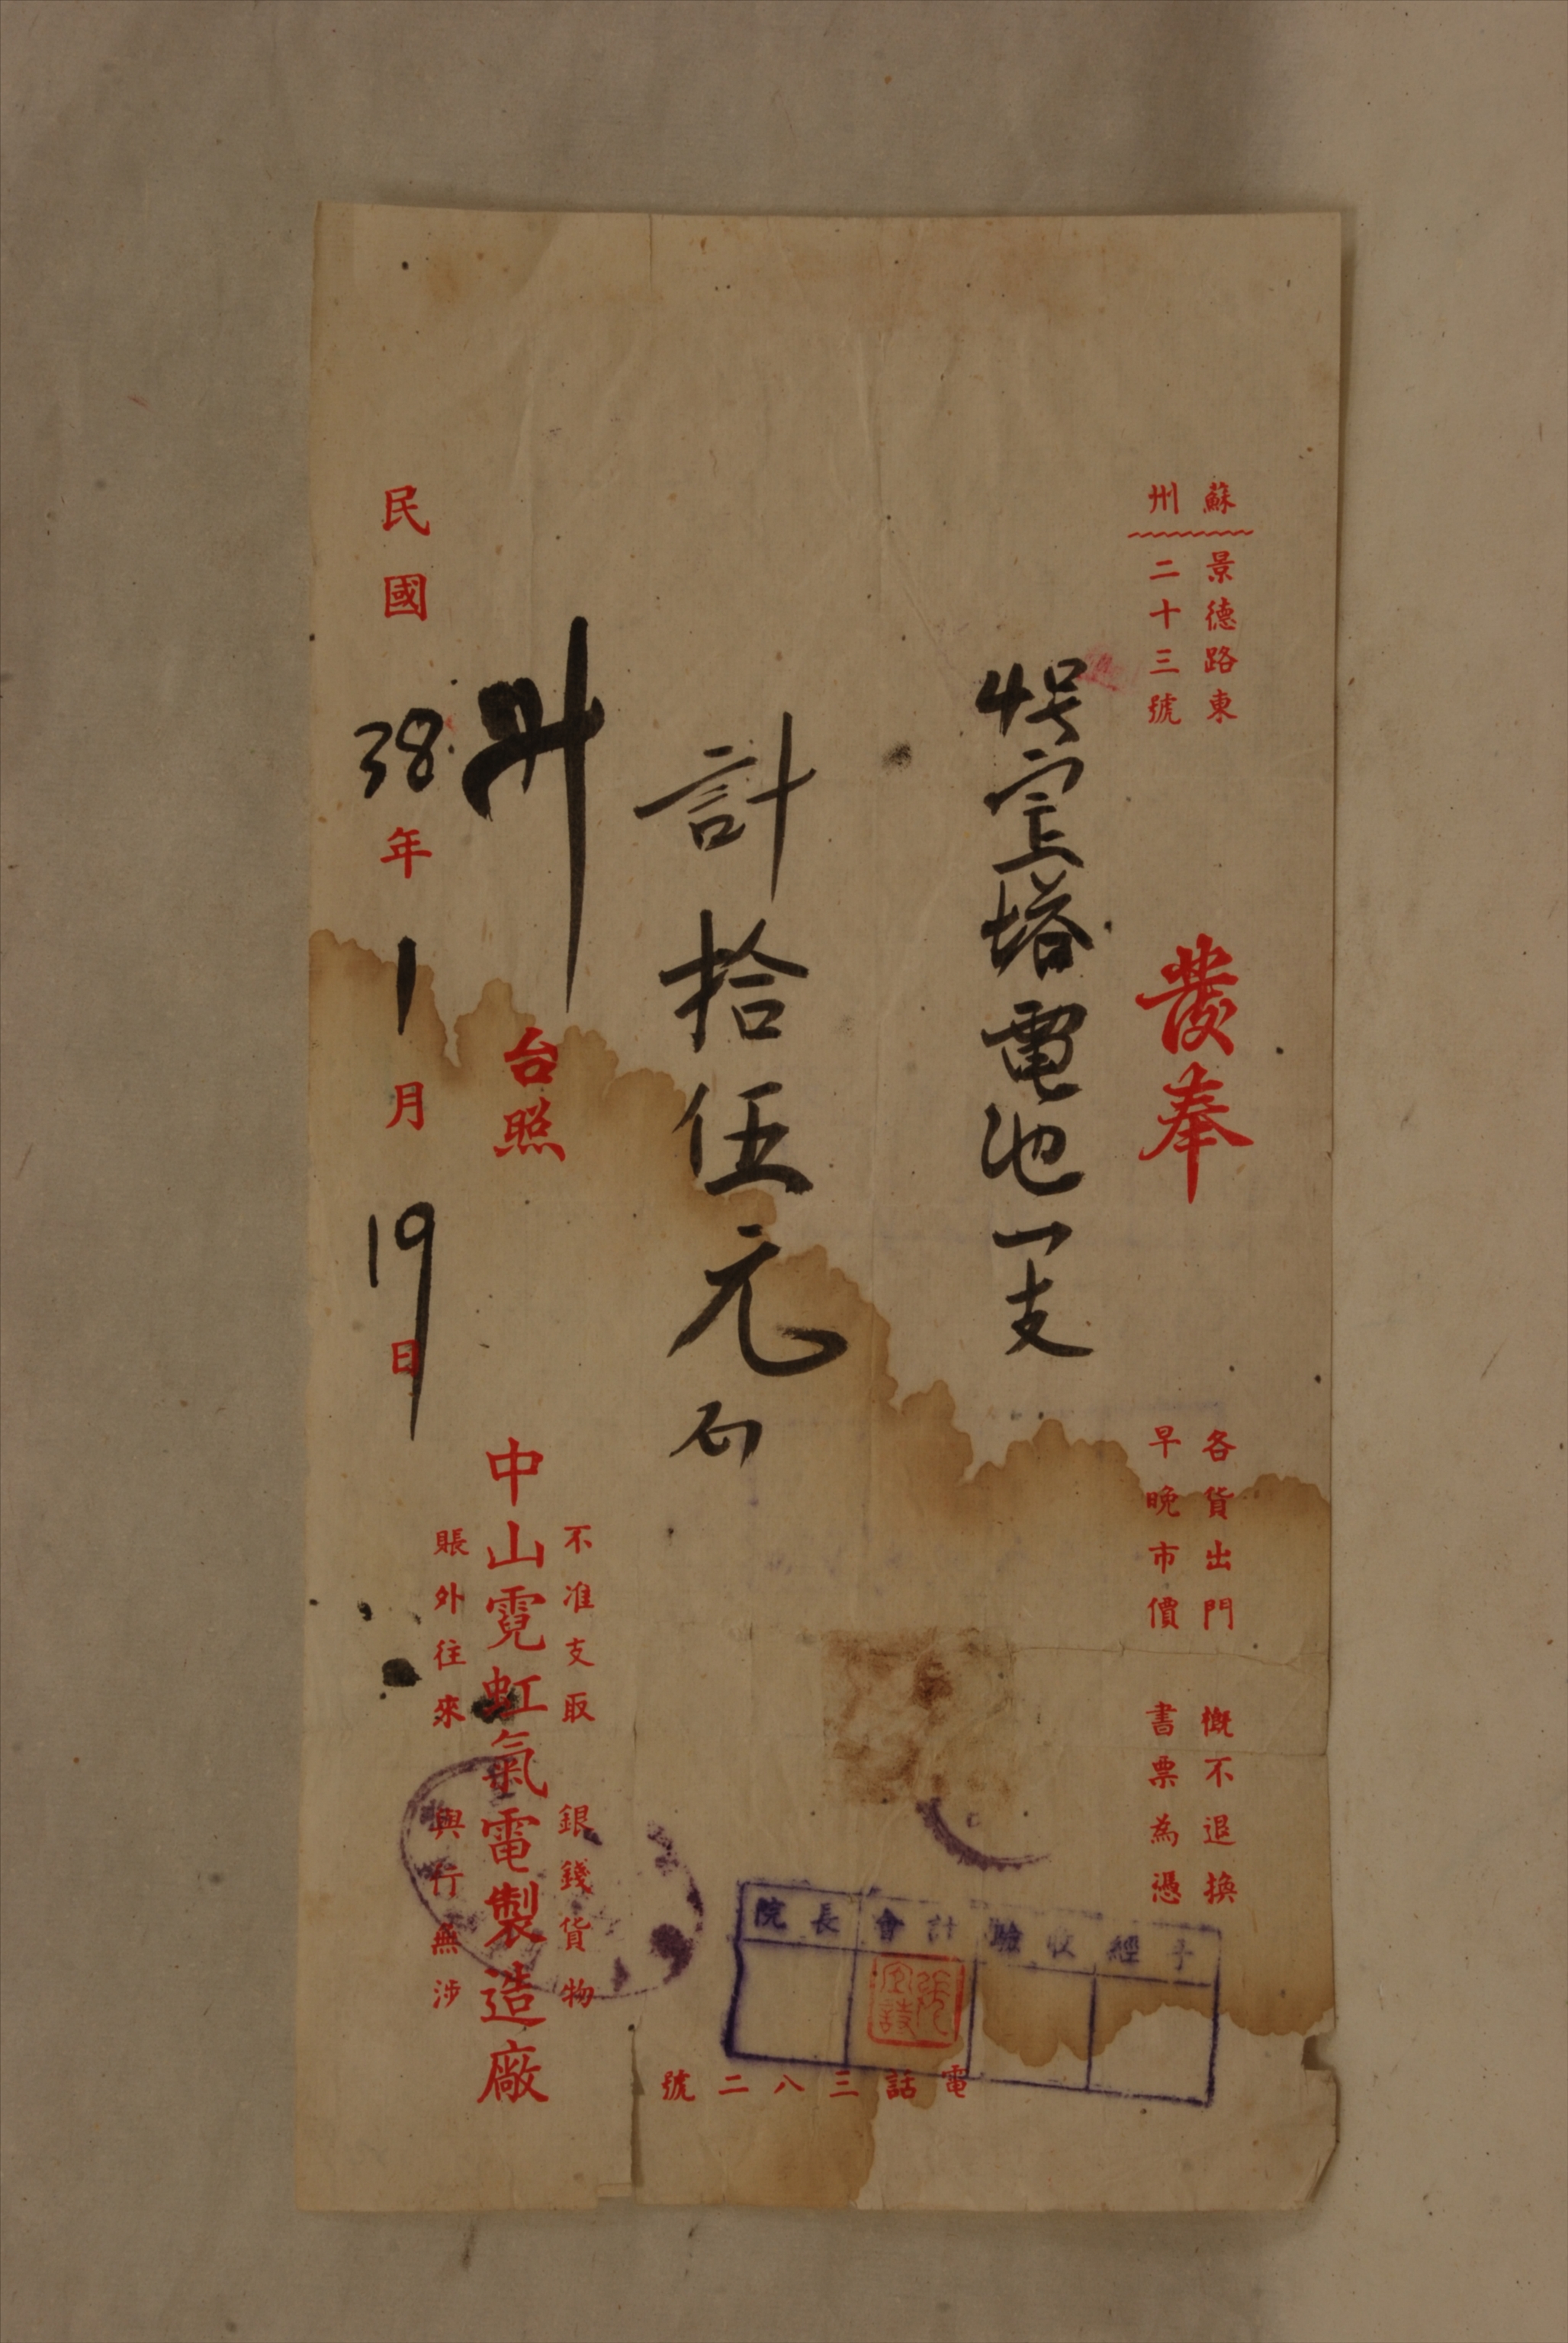 蘇州
景德路東
二十三號
發奉
各貨出門 概不退換
早晚市價 書票為憑
4号宝塔電池一支
計拾伍元
台照
不准支取 銀錢貨物
中山霓虹氣電製造廠
賬外往來 與行無涉
民國38年1月19日
電話三八二號
院長 會計 驗收 經手